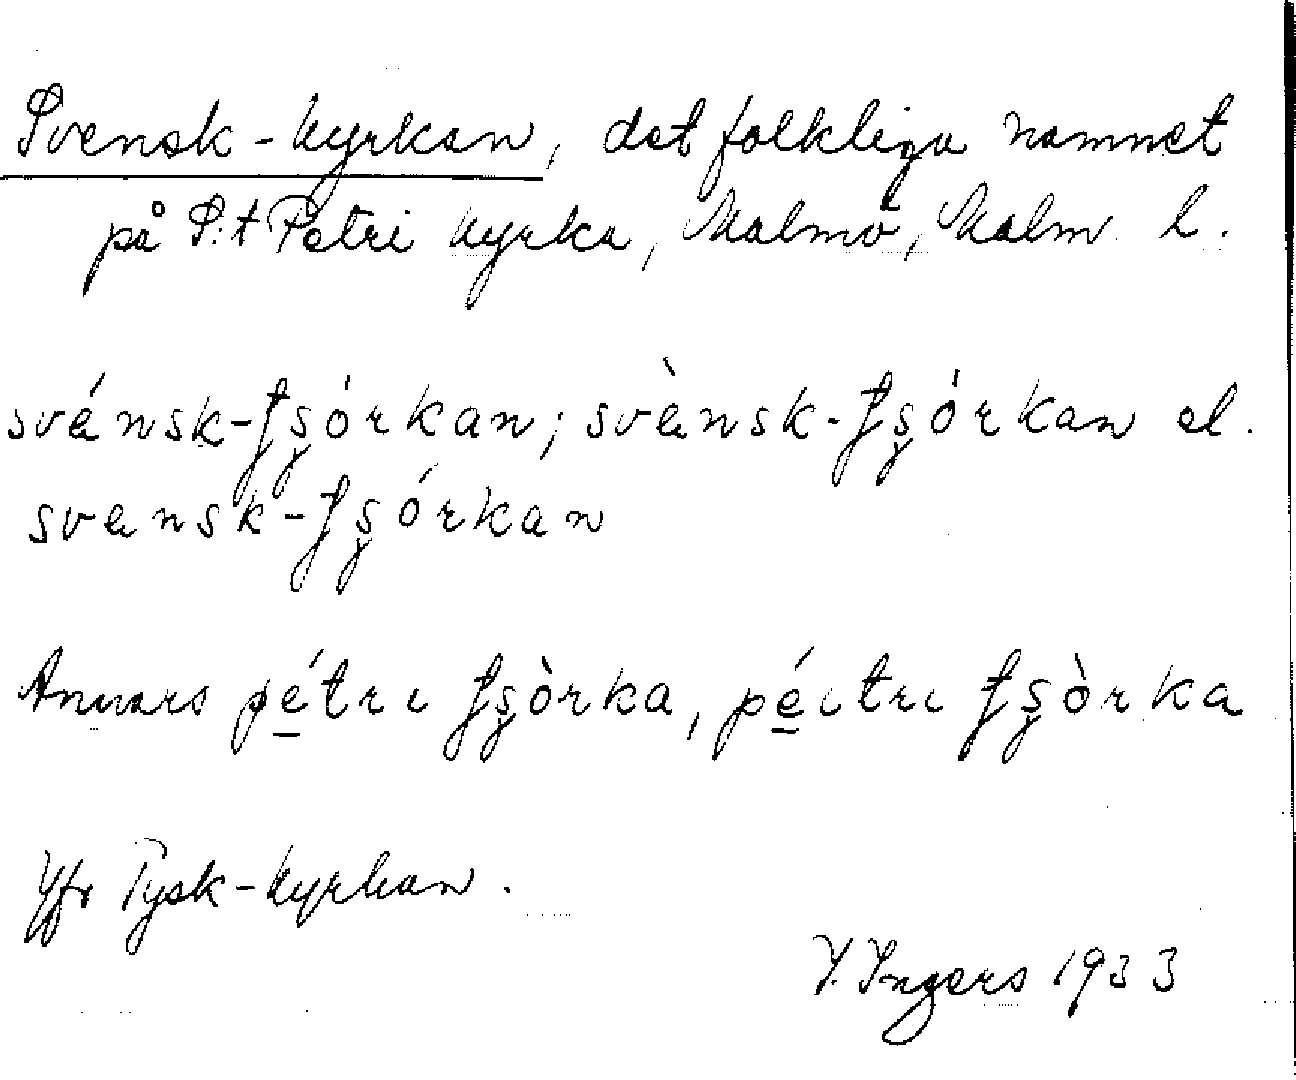 Svensk-kyrkan, det folkliga namnet
på S:t Petri kyrka, Malmö, Malm. l.
svánsk-ʄʂórkan; svànsk-ʄʂórkan el.
svansk-ʄʂórkan
Annars pé̱trɩ ʄʂòrka, pé̱ɩtrɩ ʄʂòrka
Jfr Tysk-kyrkan.
I. Ingers 1933